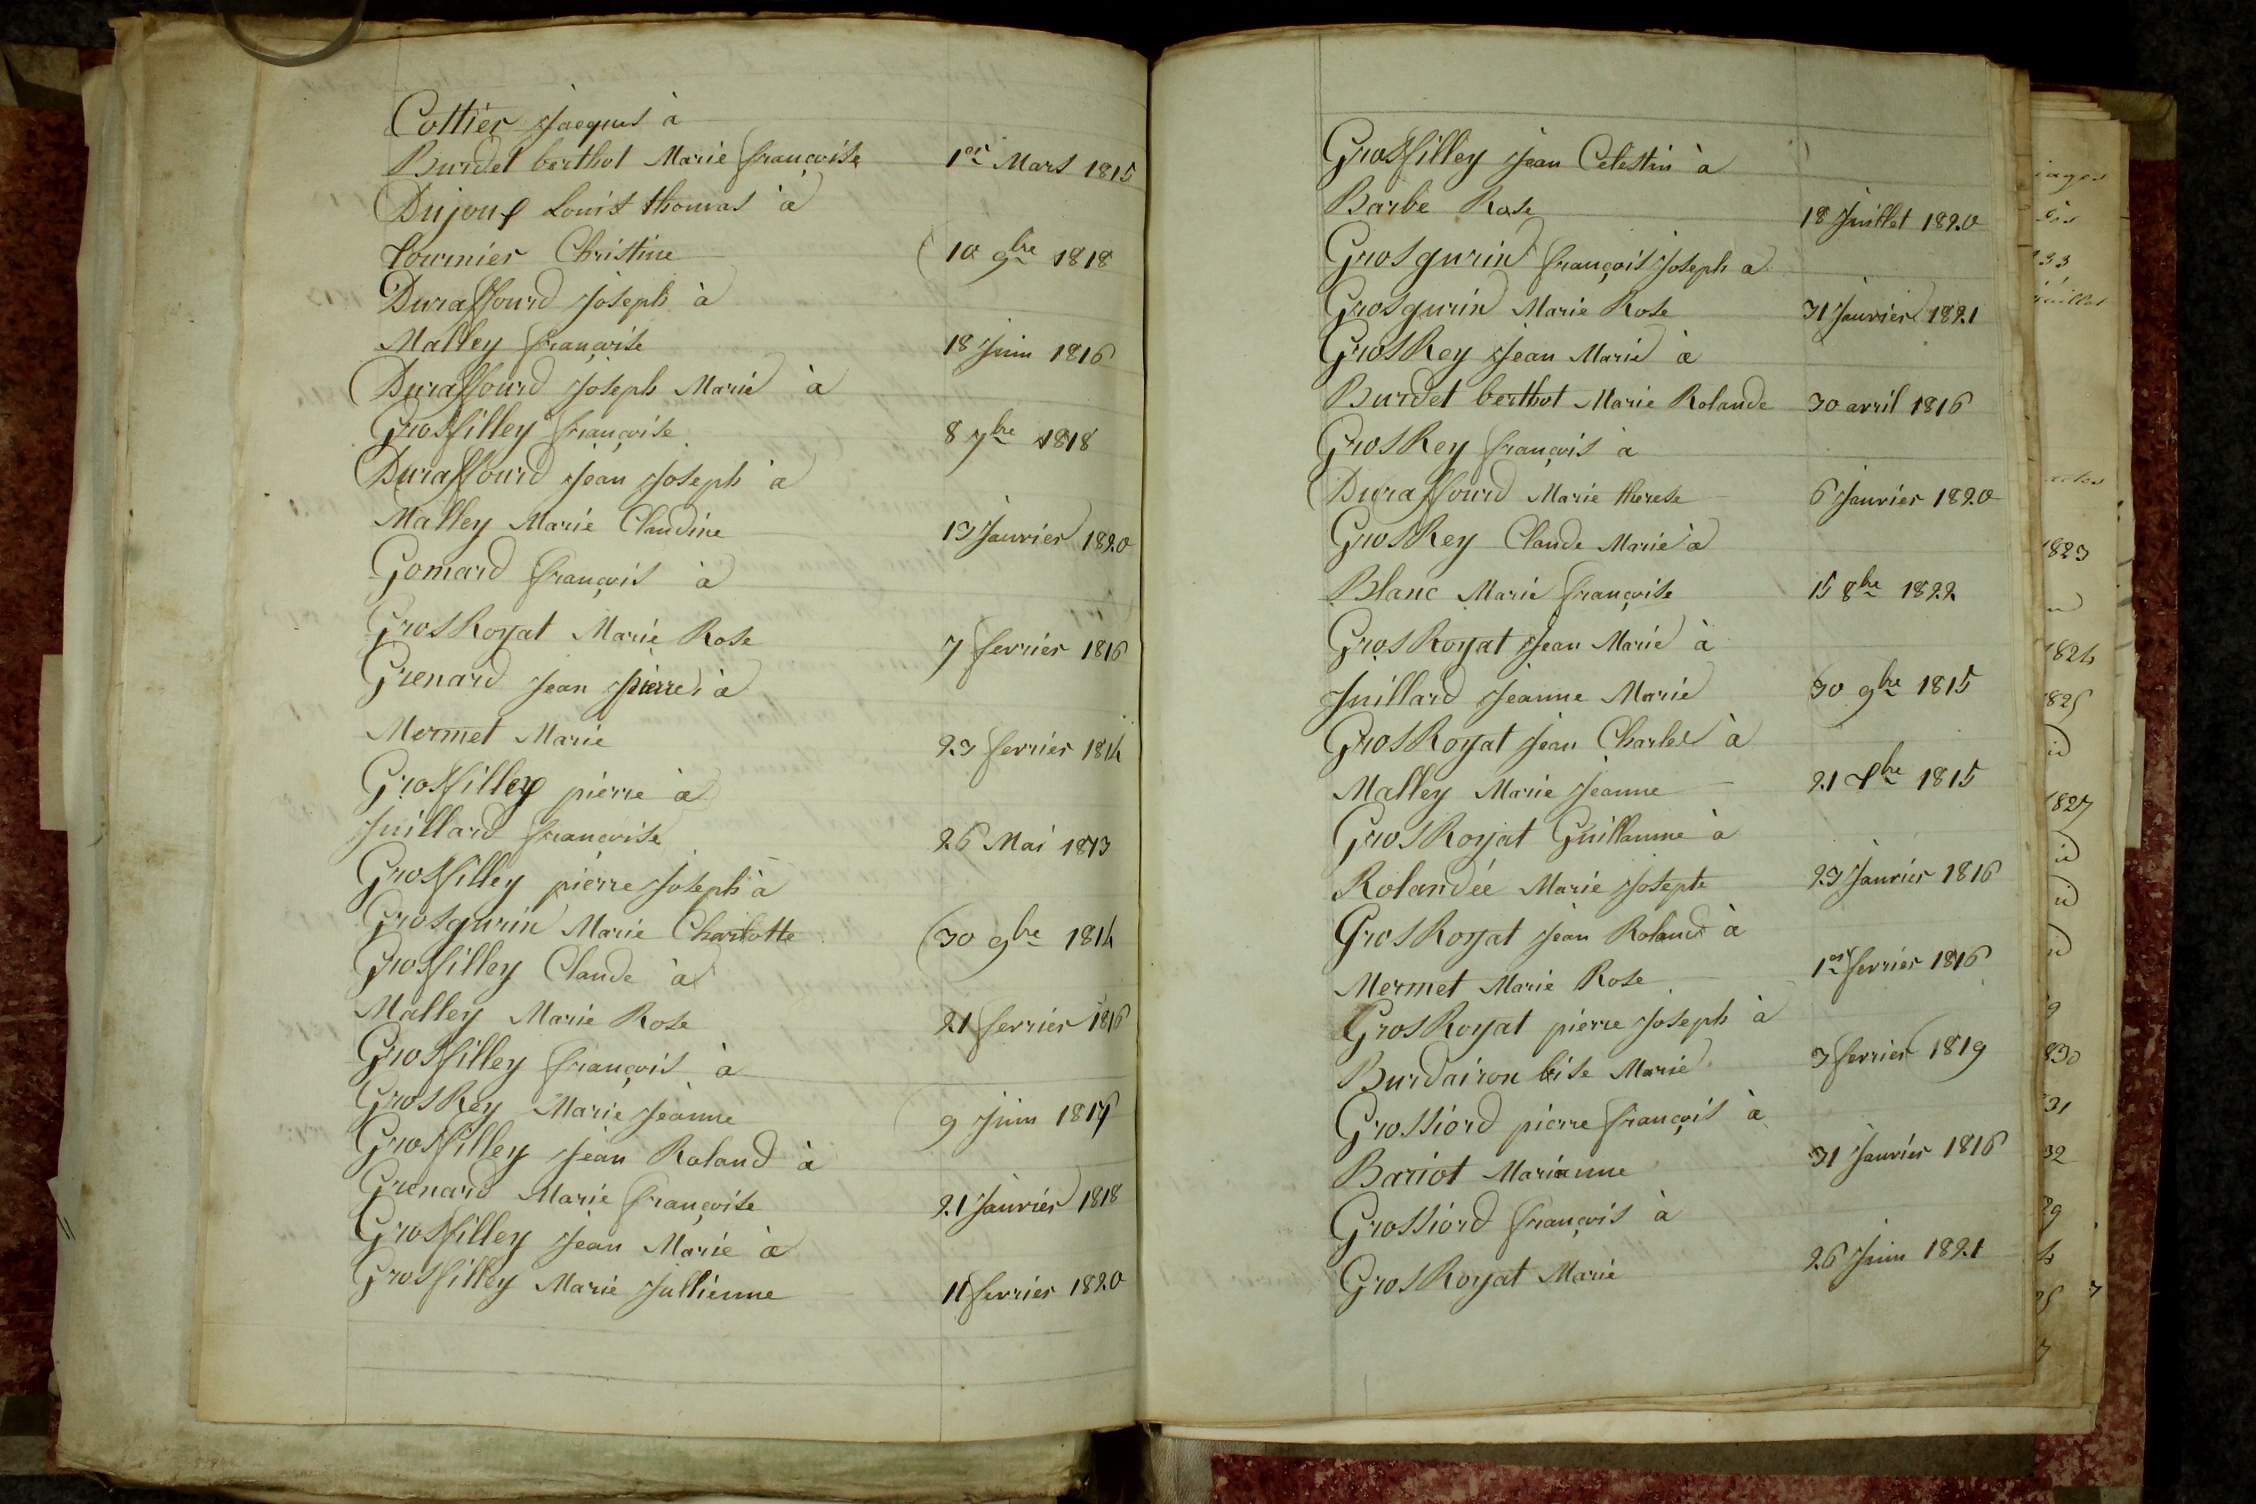 Cottier Jacques à
Burdet berthot Marie françoise 1er Mars 1815
Dujoux Louis thomas à
Tournier Christine 10 9bre 1818
Duraffourd Joseph à
Malley françoise 18 Juin 1816
Duraffourd Joseph Marie à
Grosfilley françoise 8 7bre 1818
Duraffourd Jean Joseph à
Malley Marie Claudine 13 Janvier 1820
Gomard françois à
GrosRoyat Marie Rose 7 fevrier 1816
Grenard Jean pierre à
Mermet Marie 23 fevrier 1814
Grosfilley pierre à
Juillard françoise 26 Mai 1813
Grosfilley pierre Joseph à
Grosgurin Marie Charlotte 30 9bre 1814
Grosfilley Claude à
Malley Marie Rose 21 fevrier 1816
Grosfilley françois à
GrosRey Marie Jeanne 9 Juin
Grosfilley Jean Roland à
Grenard Marie françoise 21 Janvier 1818
Grosfilley Jean Marie à
Grosfilley Marie Jullienne 11 fevrier 1820
Grosfilley Jean Celestin à
Barbe Rose 18 Juillet 1820
Grosgurin françois Joseph à
Grosgurin Marie Rose 31 Janvier 1821
GrosRey Jean Marie à
Burdet berthot Marie Rolande 30 avril 1816
GrosRey françois à
Duraffourd Marie therese 6 Janvier 1820
GrosRey Claude Marie à
Blanc Marie françoise 15 8bre 1822
GrosRoyat Jean Marie à
Juillard Jeanne Marie 30 9bre 1815
GrosRoyat Jean Charles à
Malley Marie Jeanne 21 Xbre 1815
GrosRoyat Guillaume à
Rolandée Marie Josepte 23 Janvier 1816
GrosRoyat Jean Roland à
Mermet Marie Rose 1er fevrier 1816
GrosRoyat pierre Joseph à
Burdairon bise Marie 3 fevrier 1819
Grossiord pierre françois à
Bariot Marianne 31 Janvier 1816
Grossiord françois à
GrosRoyat Marie 26 Juin 1821